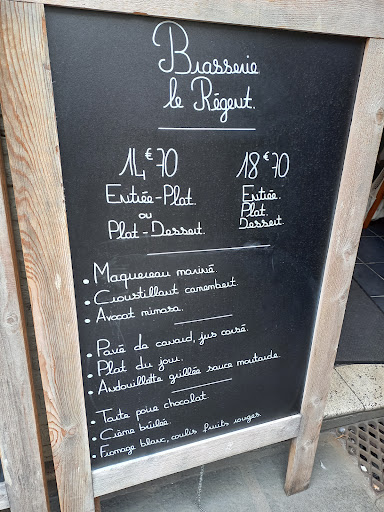 Brasserie
le Régent.
14€70 18€70
Entrée-Plat Entrée.
ou Plat.
Plat-Dessert. Dessert.
• Maquereau mariné.
• Croustillant camembert.
• Avocat mimosa.
• Pavé de canard, jus corsé.
• Plat du jour.
• Andouillette grillée sauce moutarde.
• Tarte poire chocolat
• Crème brûlée.
• Fromage blanc, coulis fruits rouges.